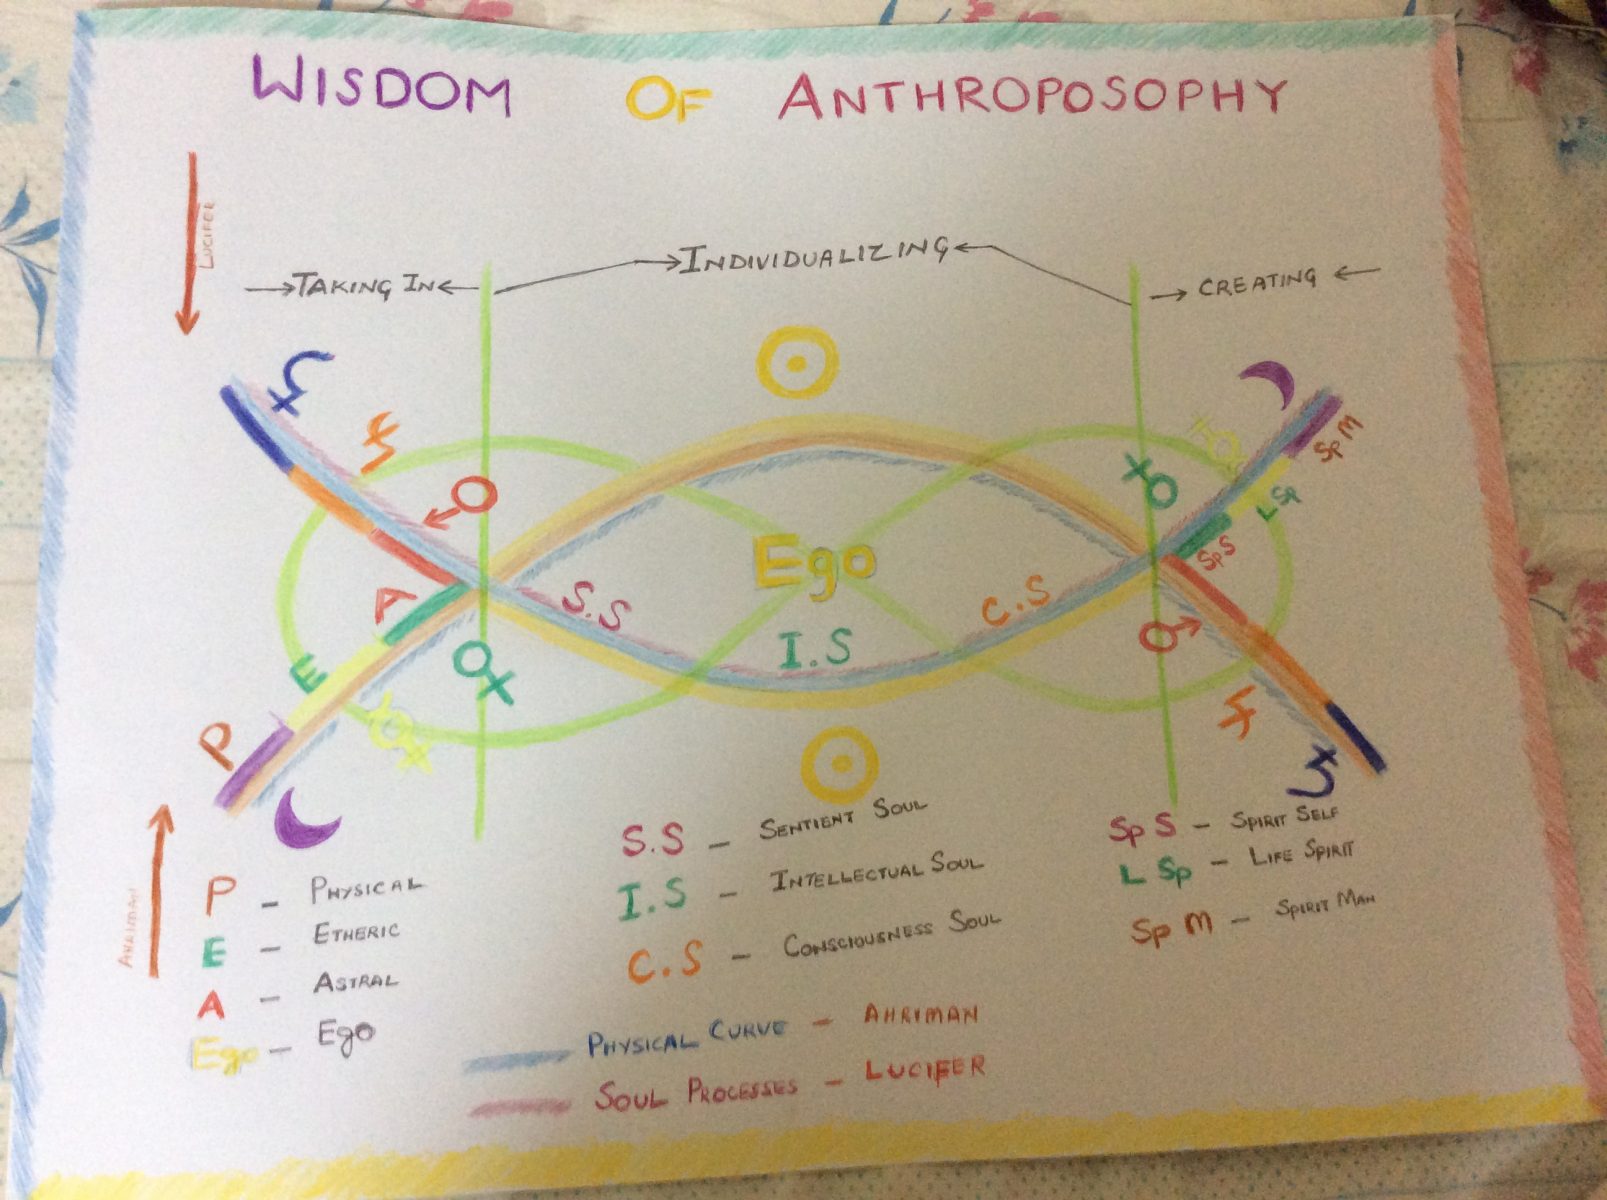 WISDOM OF ANTHROPOSOPHY
LUCIFER
TAKING IN
INDIVIDUALIZING
CREATING
Sp M
L Sp
Sp S
Ego
A
S.S
C.S
I.S
E
P
AHRIMAN
P - PHYSICAL
E - ETHERIC
A - ASTRAL
Ego - Ego
S.S - SENTIENT SOUL
I.S - INTELLECTUAL SOUL
C.S - CONSCIOUSNESS SOUL
Sp S - SPIRIT SELF
L Sp - LIFE SPIRIT
Sp M - SPIRIT MAN
PHYSICAL CURVE - AHRIMAN
SOUL PROCESSES - LUCIFER